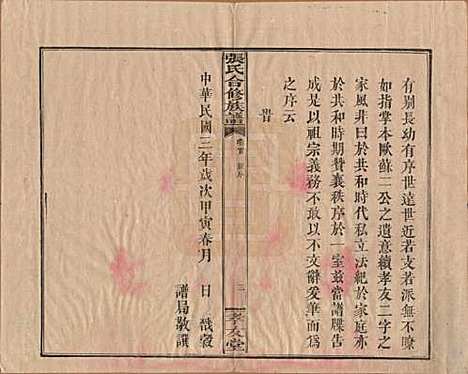 有別長幼有序世遠世近若支若派無不
如指掌本歐蘇二公之遺意續孝友二字之
家風非曰於共和時代私立法紀於家庭亦
於共和時期贊襄秩序於一室茲當譜牒告
成是以祖宗義務不敢以不文辭爰筆而為
之序云
旹
張氏合修族譜
三
孝友堂
中華民國三年歲次甲寅春月　日　戩穀
譜局敬譔